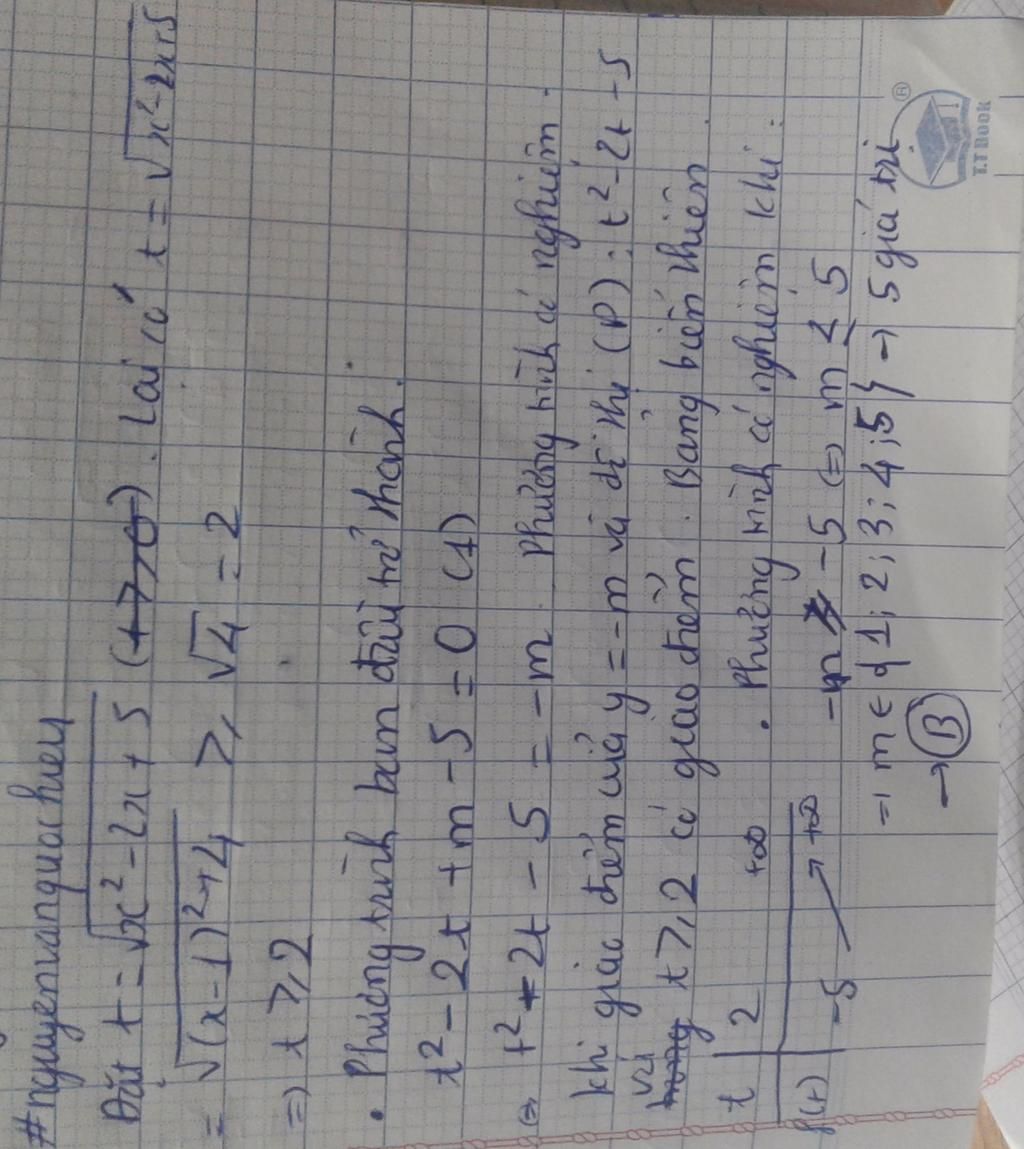 #nguyenrangquochieu
Đặt t = √x² - 2x + 5 (t > 0). Lại có t = √x² - 2x + 5
= √(x - 1)² + 4 ≥ √4 = 2
=> t ≥ 2
• Phương trình ban đầu trở thành.
t² - 2t + m - 5 = 0 (1)
<=> t² - 2t - 5 = -m. Phương trình có nghiệm.
khi giao điểm của y = -m và đồ thị (P): t² - 2t - 5
với t ≥ 2 có giao điểm. Bảng biến thiên
t 2 +∞ • Phương trình có nghiệm khi:
f(t) -5 +∞ -m ≥ -5 (=) m ≤ 5
=> m ∈ {1; 2; 3; 4; 5} → 5 giá trị
→ B
T.T Book ®